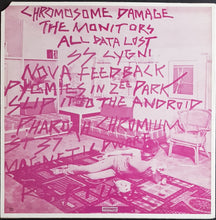 CHROMOSOME DAMAGE
THE MONITORS
ALL DATA LOST
SS CYGNI
NOVA FEEDBACK
PYGMIES IN ZEE PARK
SLIP INTO THE ANDROID
PHAROAH CHROMIUM
MAGNETIK